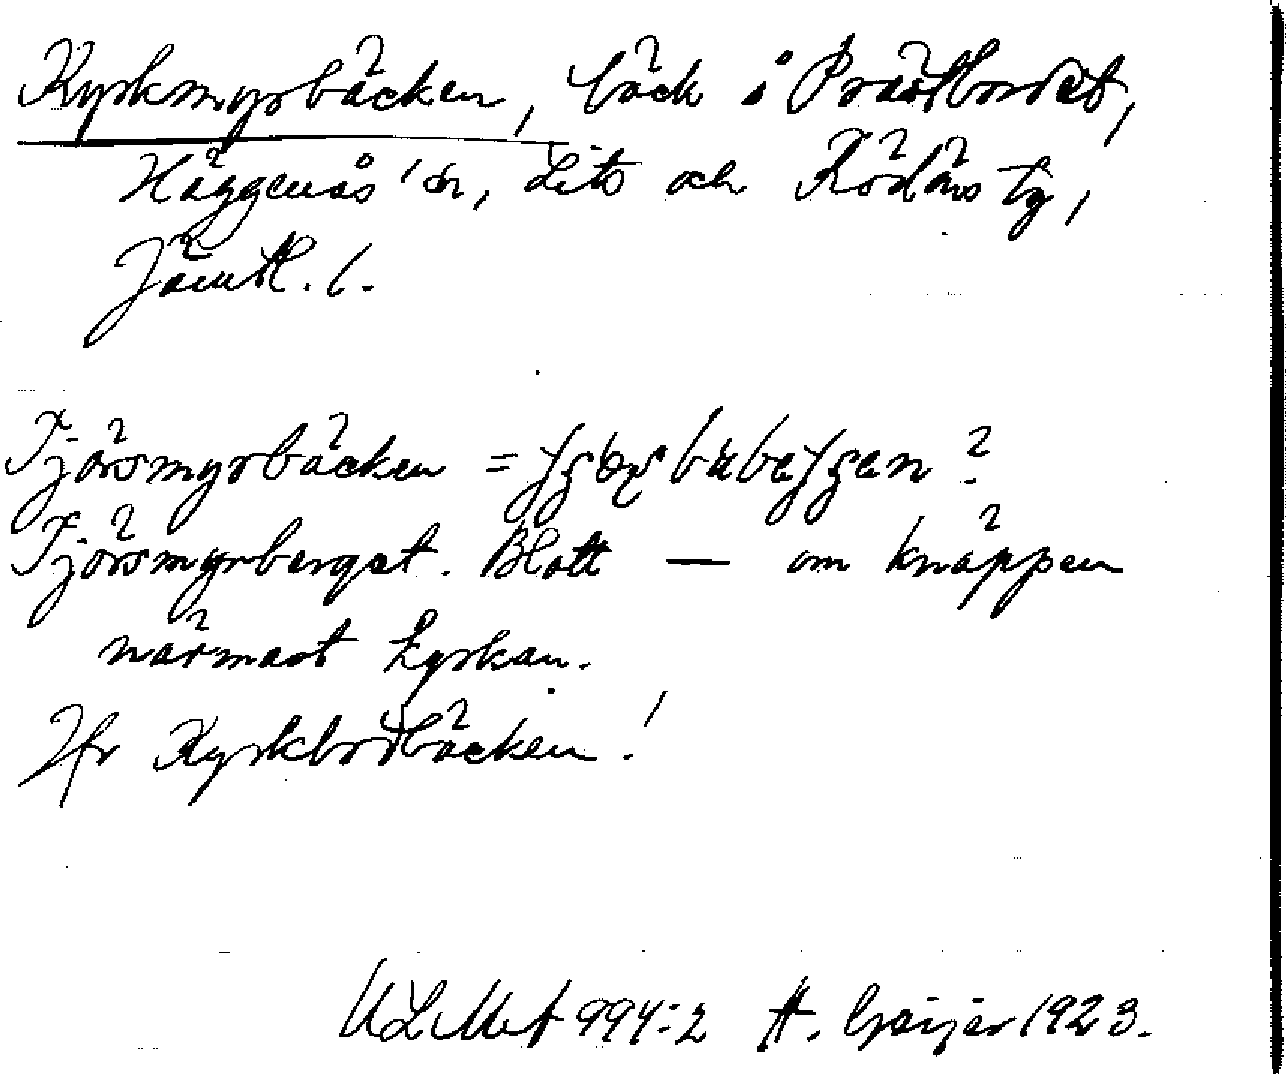 Kyrkmyrbäcken, bäck i Prästbordet,
Häggenås sn, Lits och Rödöns tg,
Jämtl. l.
Tjörsmyrbäcken = ?
Tjörsmyrberget. Blott — om knäppen
närmast kyrkan.
Jfr Kyrkbordbäcken!
ULMA 994:2 H. Geijer 1923.